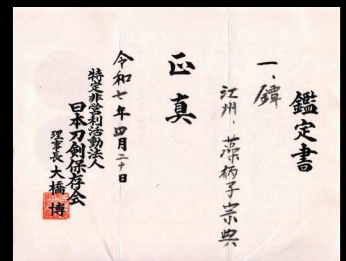 鑑定書
一、鐔
江州、藻柄子宗典
正真
令和七年四月二十日
特定非営利活動法人
日本刀剣保存会
理事長 大橋 博